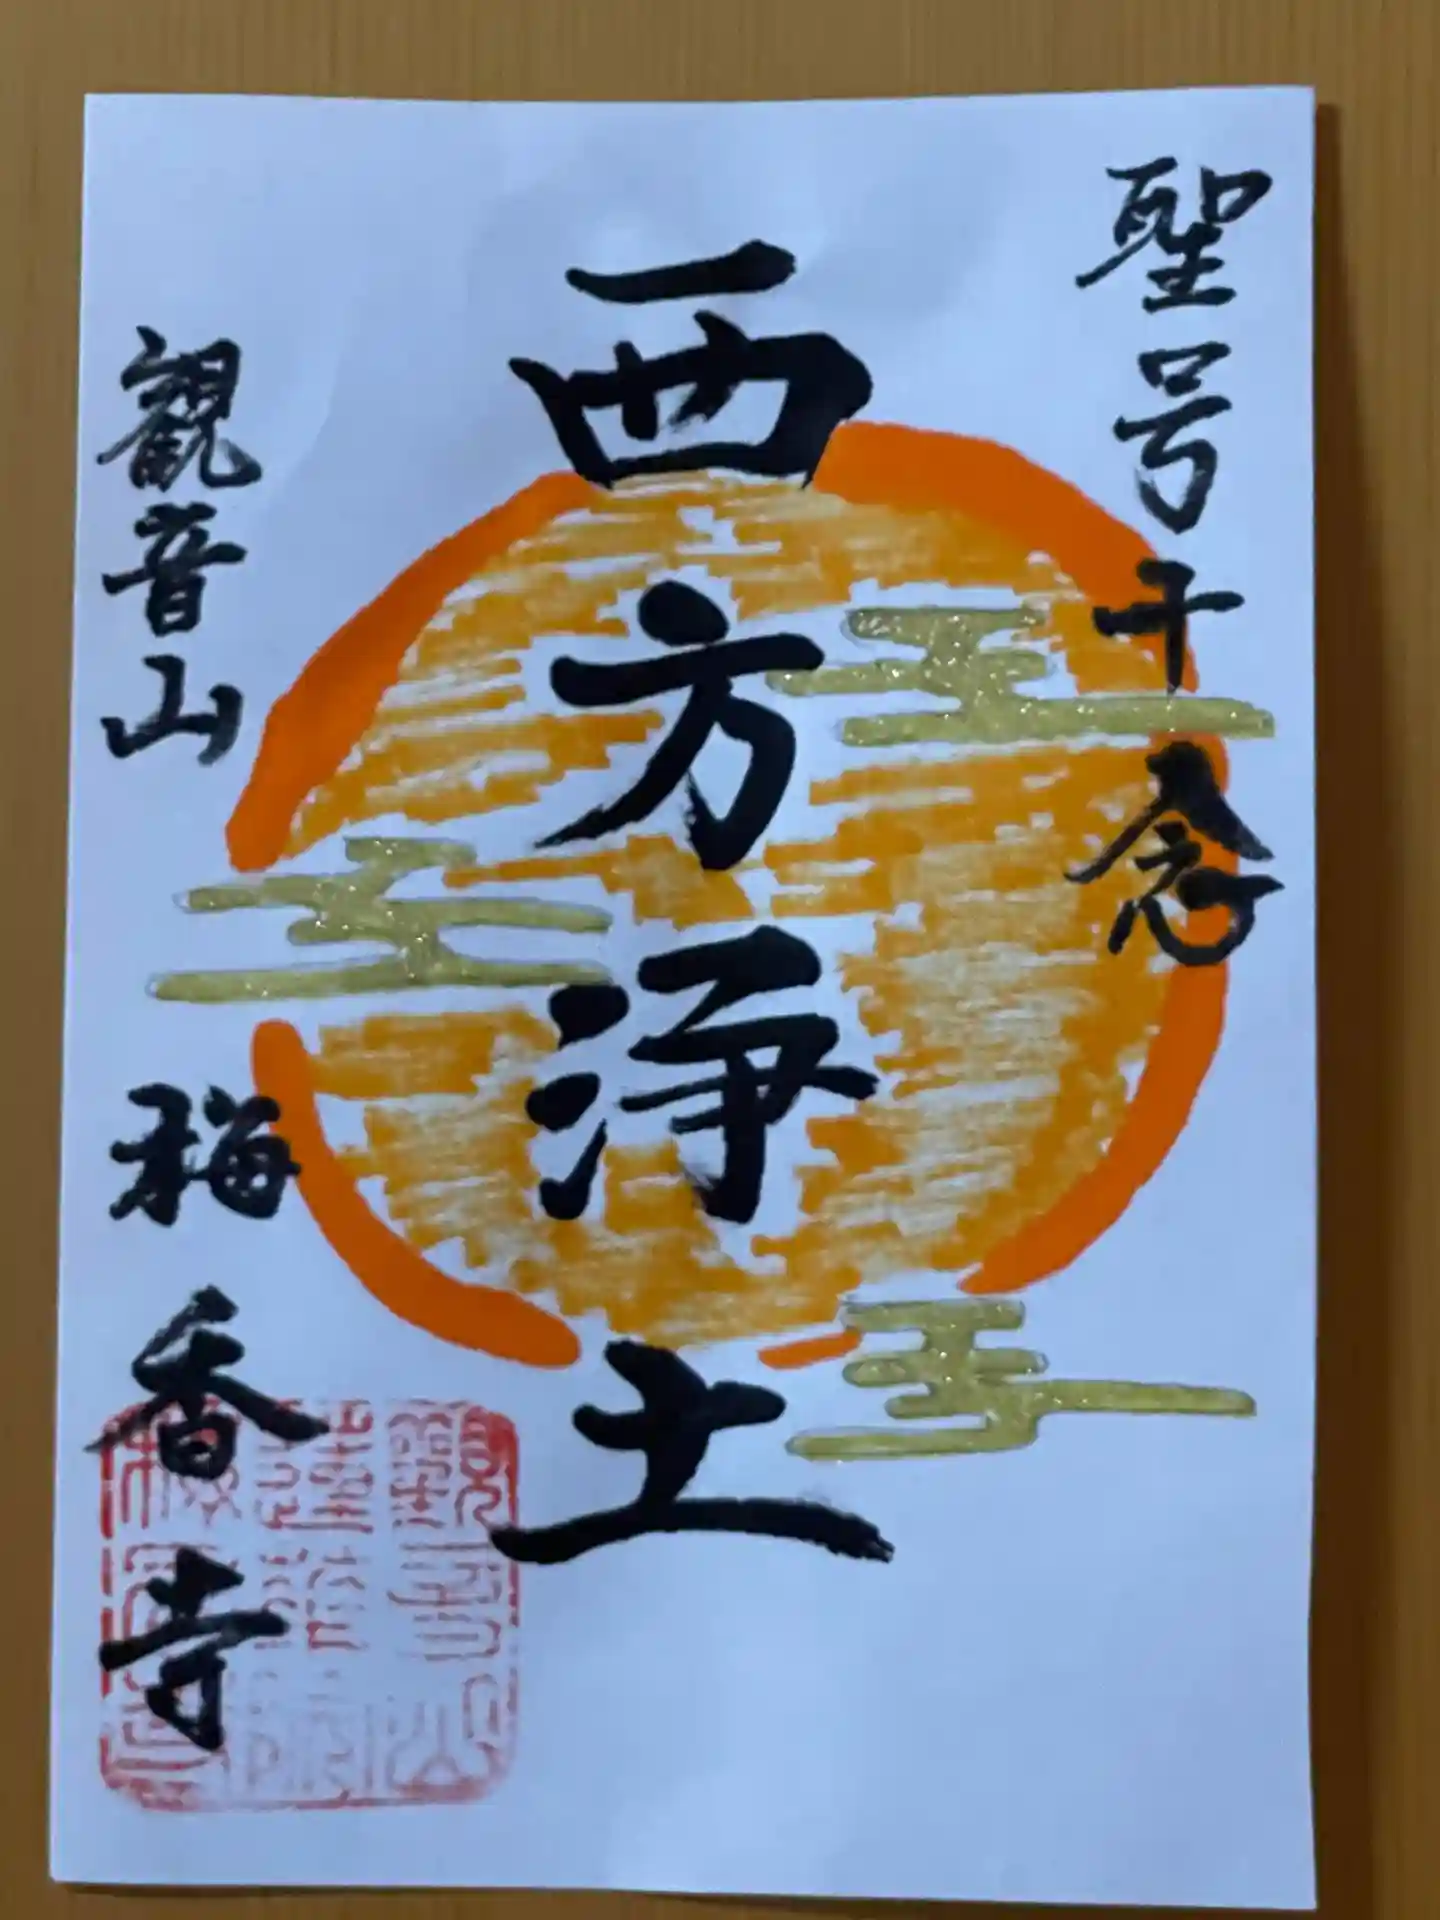 聖号千念
西方浄土
觀音山
梅香寺